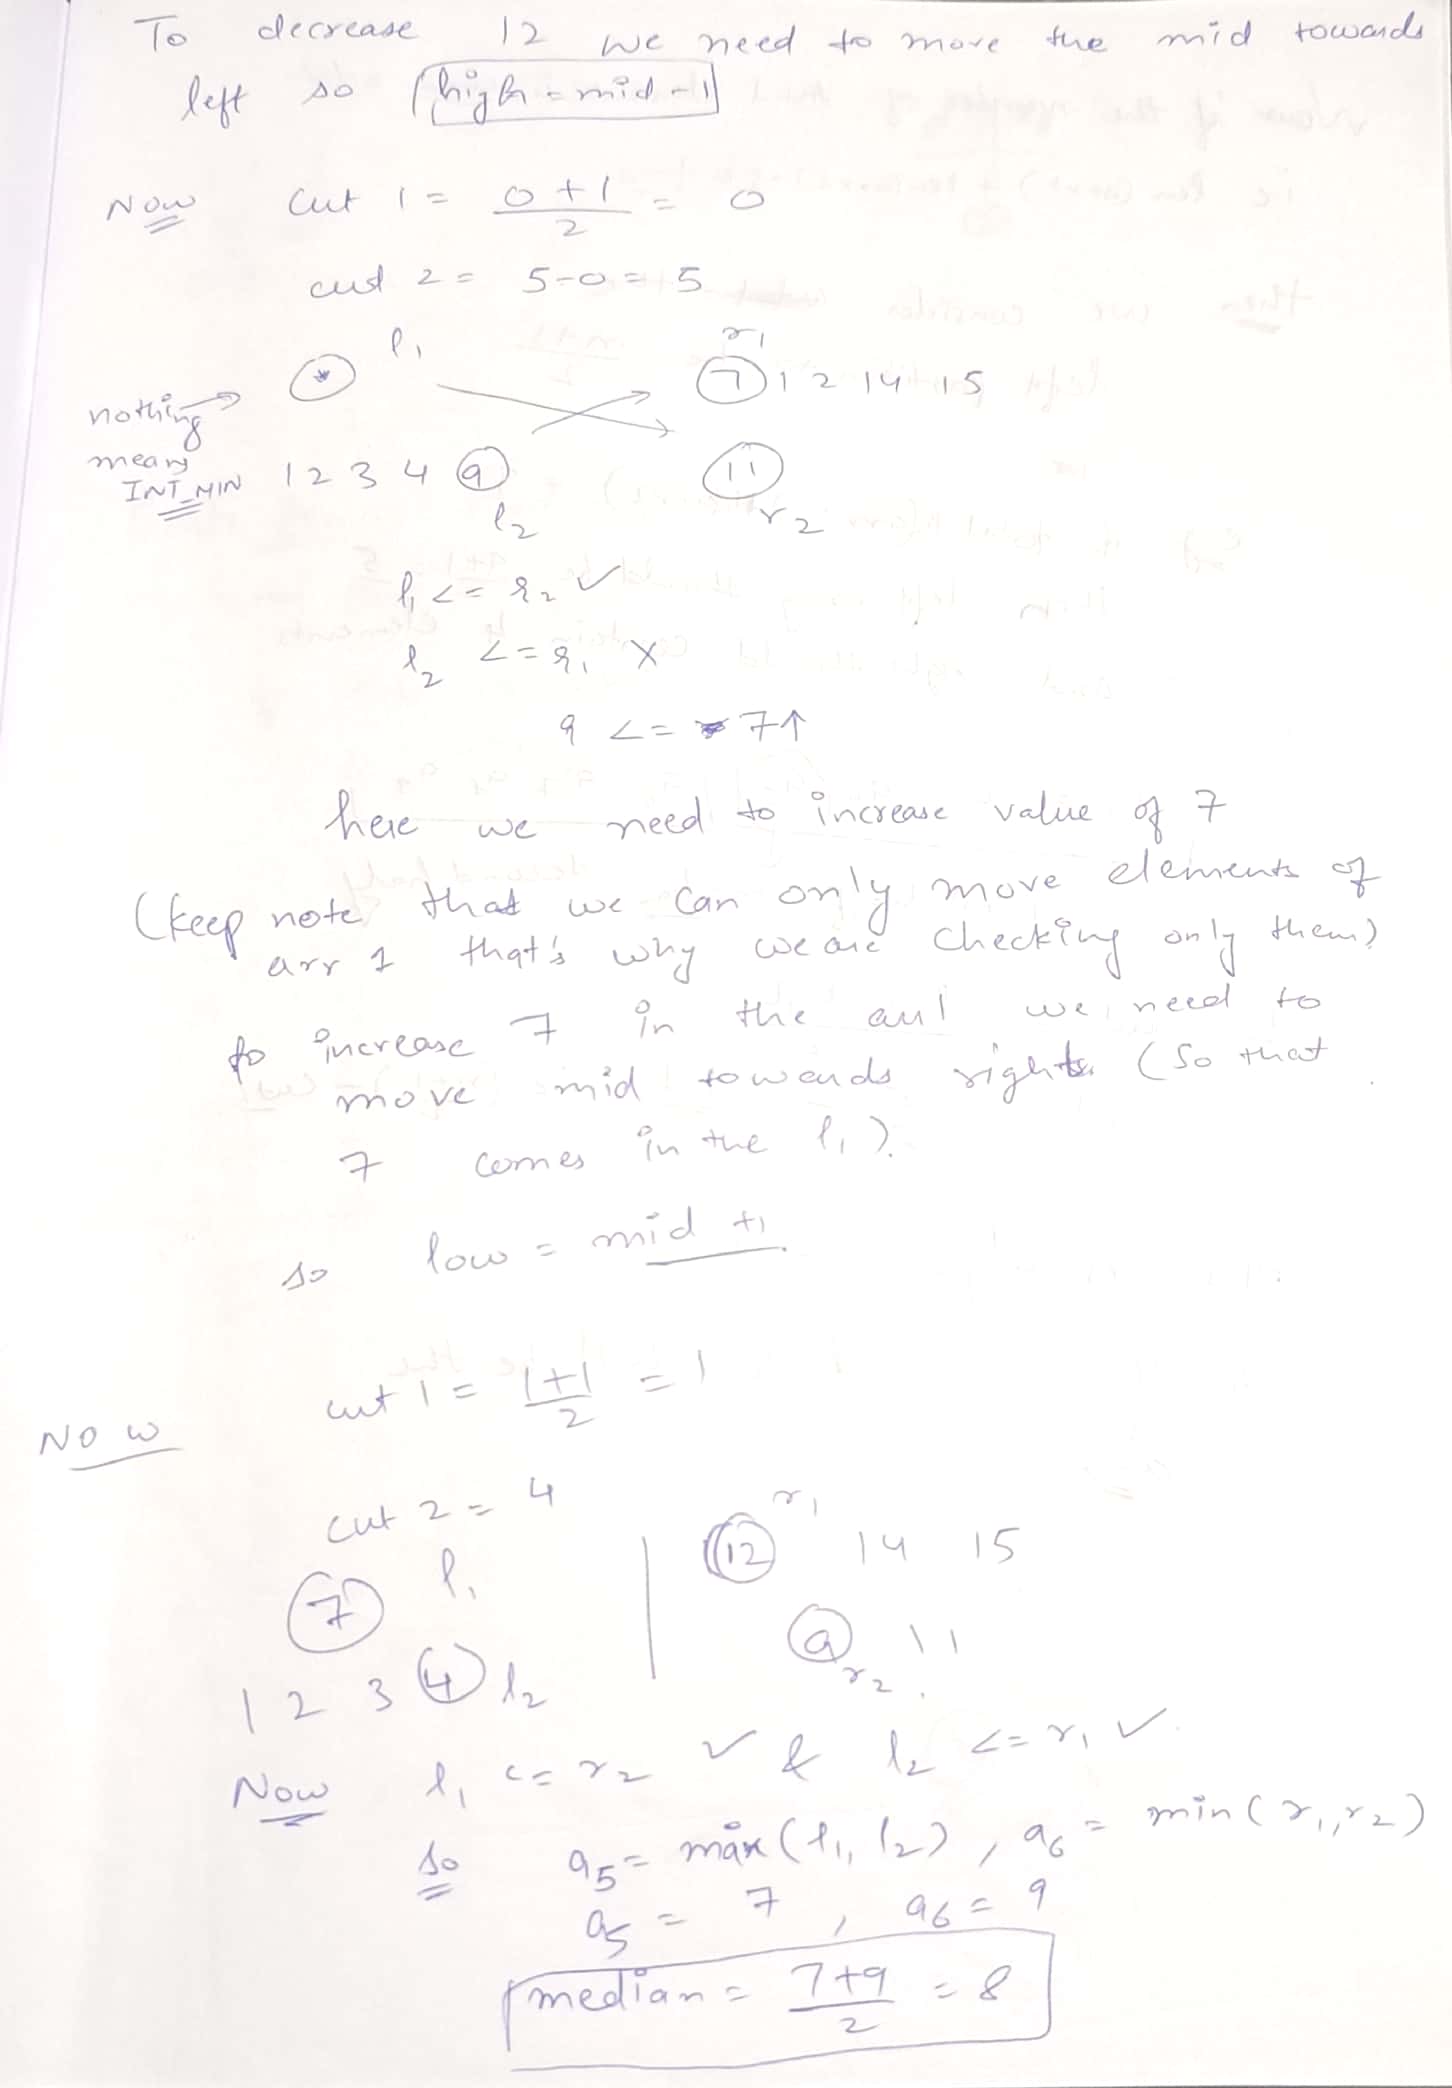 To decrease 12 we need to move the mid towards
left so high = mid - 1
Now cut 1 = 0+1/2 = 0
cut 2 = 5-0 = 5
l1 r1
* 7 12 14 15
nothing
means
INT_MIN 1 2 3 4 9 11
l2 r2
l1 <= r2 ✓
l2 <= r1 X
9 <= 7↑
here we need to increase value of 7
(keep note that we can only move elements of
arr 1 that's why we are checking only them)
to increase 7 in the arr1 we need to
move mid towards right. (so that
7 comes in the l1).
so low = mid +1
Now cut 1 = 1+1/2 = 1
cut 2 = 4
l1 r1
7 | 12 14 15
1 2 3 4 l2 9 11
r2
Now l1 <= r2 ✓ & l2 <= r1 ✓
so a5 = max(l1, l2), a6 = min(r1, r2)
a5 = 7, a6 = 9
median = 7+9/2 = 8